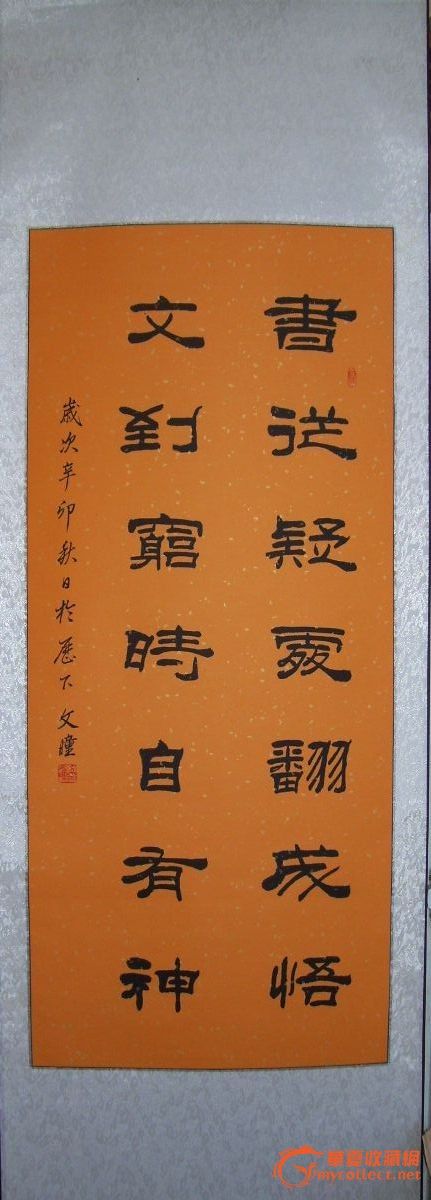 書從疑處翻成悟
文到窮時自有神
歲次辛卯秋日於歷下文瞳
華夏收藏網
mycollect.net